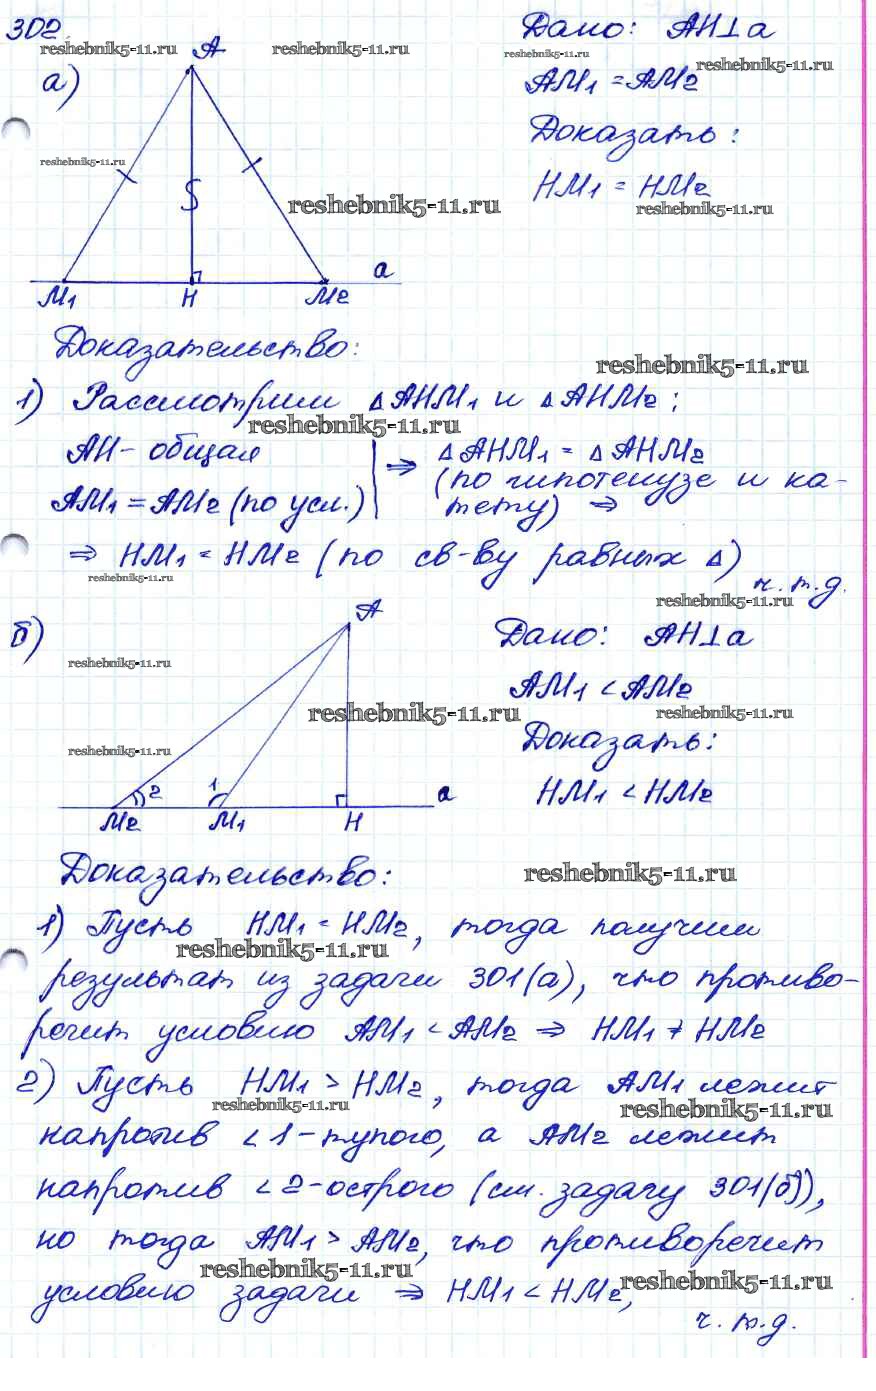 302.
reshebnik5-11.ru
A
reshebnik5-11.ru
Дано: AH⊥a
reshebnik5-11.ru
reshebnik5-11.ru
а)
AM1 = AM2
Доказать:
reshebnik5-11.ru
HM1 = HM2
reshebnik5-11.ru
reshebnik5-11.ru
a
M1
H
M2
Доказательство:
reshebnik5-11.ru
1) Рассмотрим ΔAHM1 и ΔAHM2:
reshebnik5-11.ru
AH - общая
AM1 = AM2 (по усл.)
⇒ ΔAHM1 = ΔAHM2
(по гипотенузе и ка-
тету) ⇒
⇒ HM1 = HM2 (по св-ву равных Δ)
reshebnik5-11.ru
ч.т.д.
reshebnik5-11.ru
б)
A
Дано: AH⊥a
reshebnik5-11.ru
AM1 < AM2
reshebnik5-11.ru
reshebnik5-11.ru
Доказать:
reshebnik5-11.ru
HM1 < HM2
2
1
a
M2
M1
H
Доказательство:
reshebnik5-11.ru
1) Пусть HM1 = HM2, тогда получим
reshebnik5-11.ru
результат из задачи 301(а), что противо-
речит условию AM1 < AM2 ⇒ HM1 ≠ HM2
2) Пусть HM1 > HM2, тогда AM1 лежит
reshebnik5-11.ru
reshebnik5-11.ru
напротив ∠1-тупого, а AM2 лежит
напротив ∠2-острого (см. задачу 301(б)),
но тогда AM1 > AM2, что противоречит
reshebnik5-11.ru
reshebnik5-11.ru
условию задачи ⇒ HM1 < HM2,
ч.т.д.